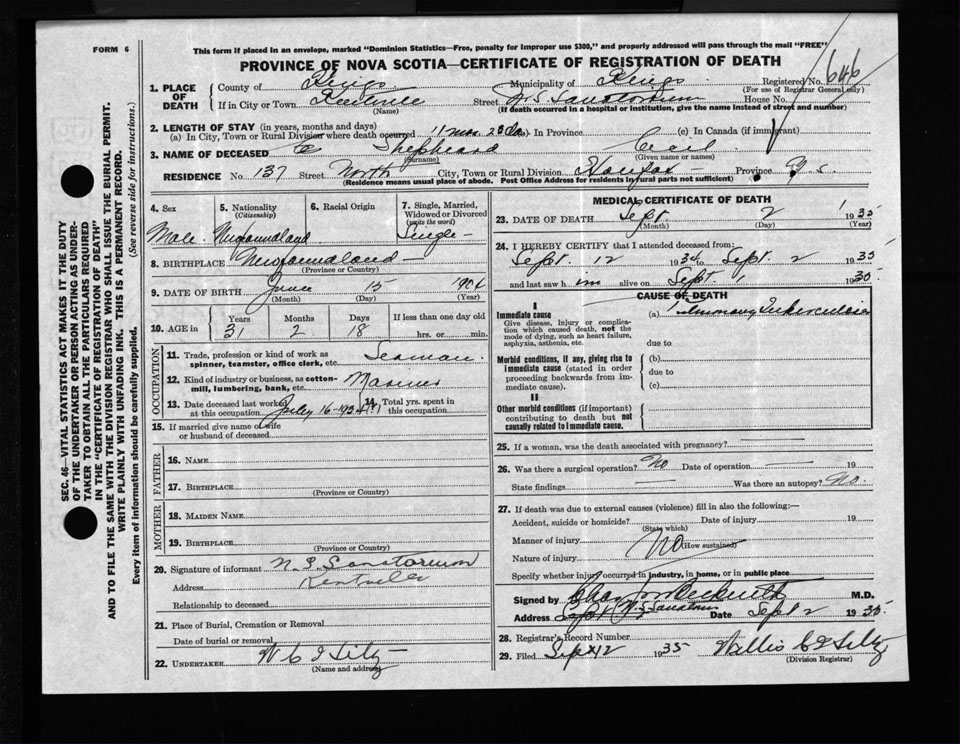 FORM 6
This form if placed in an envelope, marked "Dominion Statistics—Free, penalty for improper use $300," and properly addressed will pass through the mail "FREE"
PROVINCE OF NOVA SCOTIA—CERTIFICATE OF REGISTRATION OF DEATH
SEC. 46—VITAL STATISTICS ACT MAKES IT THE DUTY
OF THE UNDERTAKER OR PERSON ACTING AS UNDER-
TAKER TO OBTAIN ALL THE PARTICULARS REQUIRED
IN THE "CERTIFICATE OF REGISTRATION OF DEATH"
AND TO FILE THE SAME WITH THE DIVISION REGISTRAR WHO SHALL ISSUE THE BURIAL PERMIT.
WRITE PLAINLY WITH UNFADING INK. THIS IS A PERMANENT RECORD.
Every item of information should be carefully supplied. (See reverse side for instructions.)
1. PLACE OF DEATH
County of Kings Municipality of Kings Registered No. 646
(For use of Registrar General only)
If in City or Town Kentville Street N.S. Sanatorium House No.
(Name) (If death occurred in a hospital or institution, give the name instead of street and number)
2. LENGTH OF STAY (in years, months and days)
(a) In City, Town or Rural Division where death occurred 11 mos. (b) In Province (c) In Canada (if immigrant)
3. NAME OF DECEASED Shepheard Cecil
(Surname) (Given name or names)
RESIDENCE No. 137 Street North City, Town or Rural Division Halifax Province N.S.
(Residence means usual place of abode. Post Office Address for residents in rural parts not sufficient)
4. Sex
Male
5. Nationality
(Citizenship)
Newfoundland
6. Racial Origin
7. Single, Married,
Widowed or Divorced
(write the word)
Single
8. BIRTHPLACE Newfoundland
(Province or Country)
9. DATE OF BIRTH June 15 1904
(Month) (Day) (Year)
10. AGE in Years Months Days If less than one day old
31 2 18 hrs. or min.
OCCUPATION
11. Trade, profession or kind of work as
spinner, teamster, office clerk, etc. Seaman
12. Kind of industry or business, as cotton-
mill, lumbering, bank, etc.
13. Date deceased last worked
at this occupation July 16-1934
14. Total yrs. spent in
this occupation
15. If married give name of wife
or husband of deceased
FATHER
16. NAME
17. BIRTHPLACE
(Province or Country)
MOTHER
18. MAIDEN NAME
19. BIRTHPLACE
(Province or Country)
20. Signature of informant N.S. Sanatorium
Address Kentville
Relationship to deceased
21. Place of Burial, Cremation or Removal
Date of burial or removal
22. UNDERTAKER W C
(Name and address)
MEDICAL CERTIFICATE OF DEATH
23. DATE OF DEATH Sept. 2 1935
(Month) (Day) (Year)
24. I HEREBY CERTIFY that I attended deceased from:
Sept. 12 1934 to Sept. 2 1935
and last saw him alive on Sept. 1 1935.
CAUSE OF DEATH
I
Immediate cause
Give disease, injury or complica-
tion which caused death, not the
mode of dying, such as heart failure,
asphyxia, asthenia, etc.
(a) Pulmonary Tuberculosis
due to
Morbid conditions, if any, giving rise to
immediate cause (stated in order
proceeding backwards from im-
mediate cause).
(b)
due to
(c)
II
Other morbid conditions (if important)
contributing to death but not
causally related to immediate cause.
25. If a woman, was the death associated with pregnancy?
26. Was there a surgical operation? No Date of operation — 19
State findings — Was there an autopsy? No.
27. If death was due to external causes (violence) fill in also the following:—
Accident, suicide or homicide? Date of injury 19
(State which)
Manner of injury No
(How sustained)
Nature of injury
Specify whether injury occurred in industry, in home, or in public place
Signed by M.D.
Address N.S. Date Sept 2 1935.
28. Registrar's Record Number
29. Filed Sept 12 1935 Wallis
(Division Registrar)